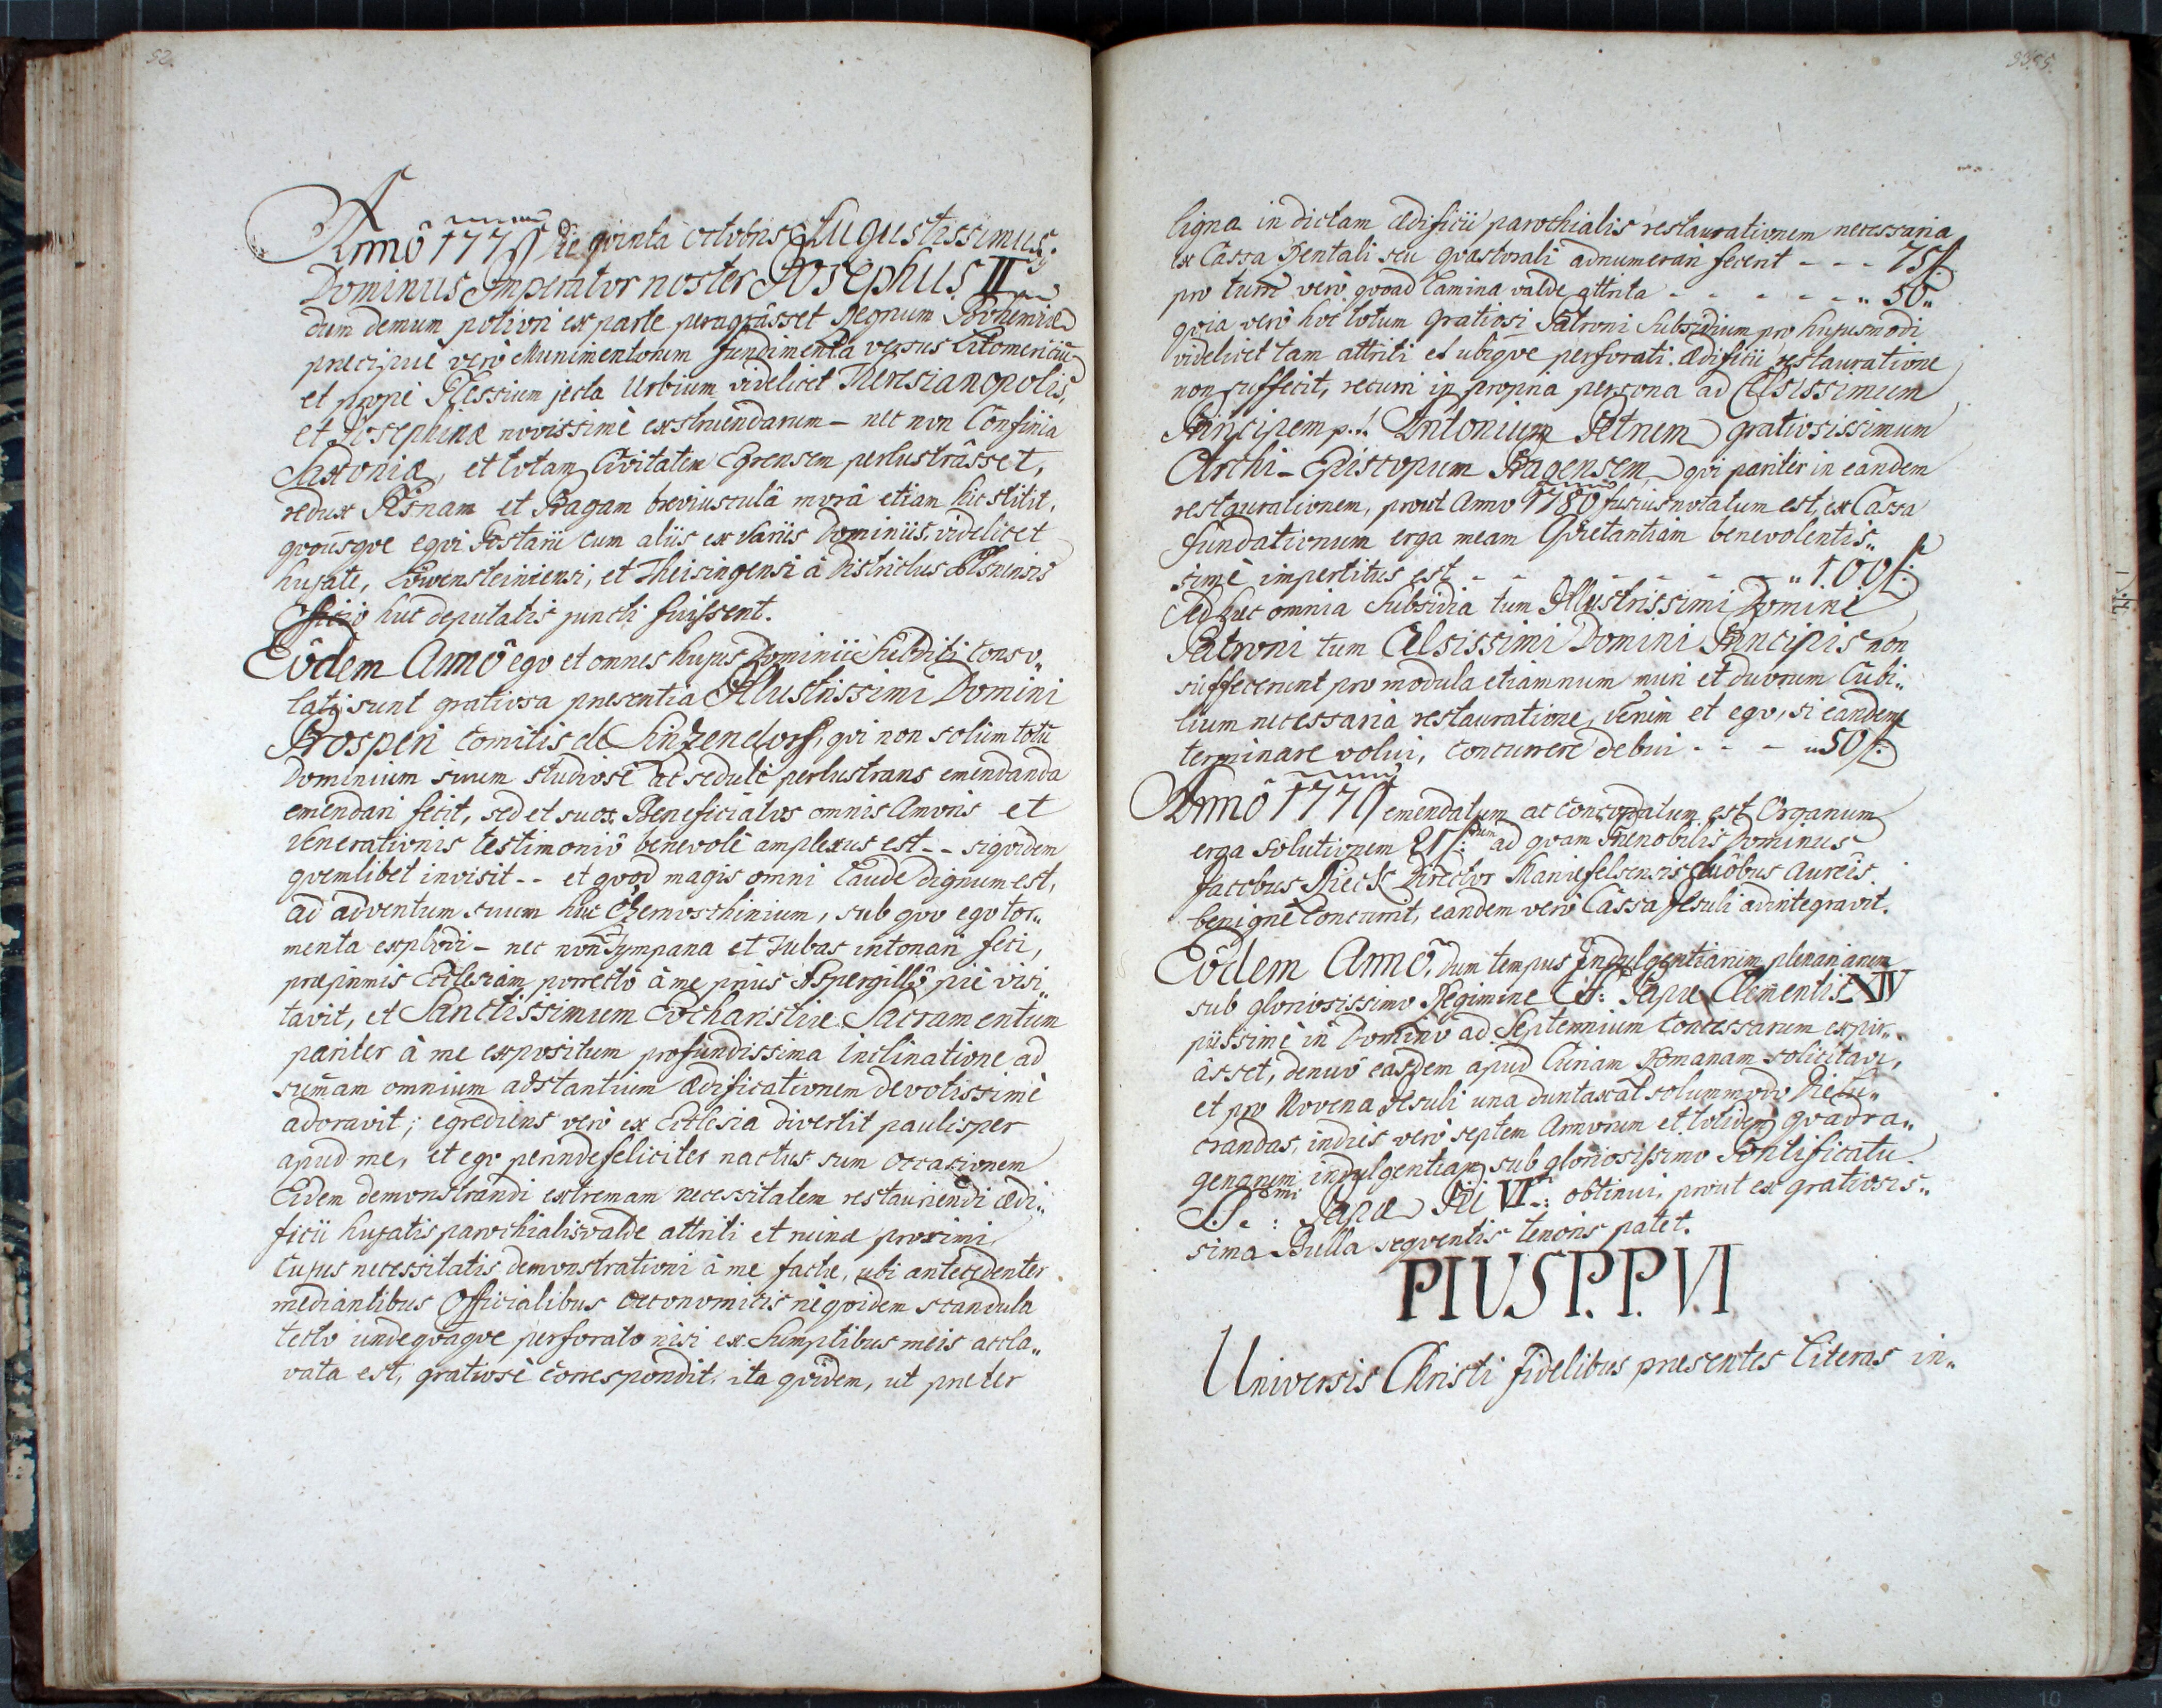 52.
Annô 1779 Die qvinta octobris Augustissimus
Dominus Imperator noster Josephus II
dum demum potiori ex parte peragrâsset Regnum Bohemiæ
præcipuè verò Munimentorum fundimenta versus Litomericiũ
et propè Plessium jecta Urbium videlicet Theresianopolis,
et Josephinæ novissimè exstruendarum – nec non Confinia
Saxoniæ, et totam Civitatem Egrensem perlustrâsset,
redux Pilsnam et Pragam breviusculâ morâ etiam hic stitit,
qvoùsqve eqvi Postarii cum aliis ex variis Dominiis, videlicet
hujate, Löwensteiniensi, et Theisingensi à Districtus Plsnensis
Officio huc deputatis juncti fuissent.
Eôdem Annô ego et omnes hujus Dominii Subditi conso„
lati sunt gratiosa præsentia Illustrissimi Domini
Prosperi Comitis de Sinzendorf, qvi non solùm totũ
Dominium suum studiosè ac sedulè perlustrans emendanda
emendari fecit, sed et suos Beneficiatos omnis Amoris et
Venerationis testimoniô benevolè amplexus est -- siqvidem
qvemlibet invisit -- et qvod magis omni Laude dignum est,
ad adventum suum huc Chemoschinium, sub qvo ego tor„
menta explodi – nec non Tympana et Tubas intonari feci,
præprimis Ecclesiam porrectô à me priùs Aspergillô piè visi„
tavit, et Sanctissimum Eucharistiæ Sacramentum
pariter à me expositum profundissima inclinatione ad
sum̃am omnium adstantium ædificationem devotissimè
adoravit; egrediens verò ex Ecclesia divertit paulisper
apud me, et ego perinde feliciter nactus sum occasionem
Eidem demonstrandi extremam necessitatem restauriendi ædi„
ficii hujatis parochialis valde attriti et ruinæ proximi,
Cujus necessitatis demonstrationi à me factæ, ubi antecedenter
mediantibus Officialibus Oeconomicis nè qvidem scandula
tecto undeqvaqve perforato nisi ex Sumptibus meis accla„
vata est, gratiosè correspondit, ita qvidem, ut præter
ligna in dictam ædificii parochialis restaurationem necessaria
ex Cassa Rentali seu qvæstorali adnumerari fecerit - - - 75 f
pro tum verò qvoad Camina valde attrita - - - - - - „ 50 „
qvia verò hoc totum Gratiosi Patroni Subsidium pro hujusmodi
videlicet tam attriti et ubiqve perforati ædificii restauratione
non suffecit, recurri in propria persona ad Celsissimum
Principem p.t. Antonium Petrum gratiosissimum
Archi-Episcopum Pragensem, qvi pariter in eandem
restaurationem, prout Anno 1780 fusius notatum est, ex Cassa
fundationum erga meam Qvietantiam benevolentis„
simè impertitus est - - - - - - - „ 100 f:
Sed hæc omnia Subsidia tum Illustrissimi Domini
Patroni tum Celsissimi Domini Principis non
suffecerunt pro modula etiamnum muri et duorum Cubi„
lium necessaria restauratione, Verùm et ego, si eandem
terminare volui, concurrere debui - - - „ 50 f:
Annô 1779 emendatum ac concordatum est Organum
erga solutionem 25 f: rum ad qvam Prænobilis Dominus
Jacobus Rieck Director Mariæfelsensis duôbus aureis
benignè concurrit, eandem verò Cassa Jesuli adintegravit.
Eôdem Annô, dum tempus Indulgentiarum plenariarum
sub gloriosissimo Regimine Papæ Clementis XIV
piissimè in Domino ad Septennium concessarum expir„
âsset, denuò easdem apud Curiam Romanam solicitavi,
et pro Novena Jesuli una duntaxat solummodo
crandas, indies verò septem Annorum et totidem qvadra„
genarum indulgentiam sub gloriosissimo Pontificatu
SS.mi: Papæ Pii VI: obtinui, prout ex gratiosis„
sima Bulla seqventis tenoris patet.
PIUS P.P. VI
Universis Christi fidelibus præsentes Literas in„